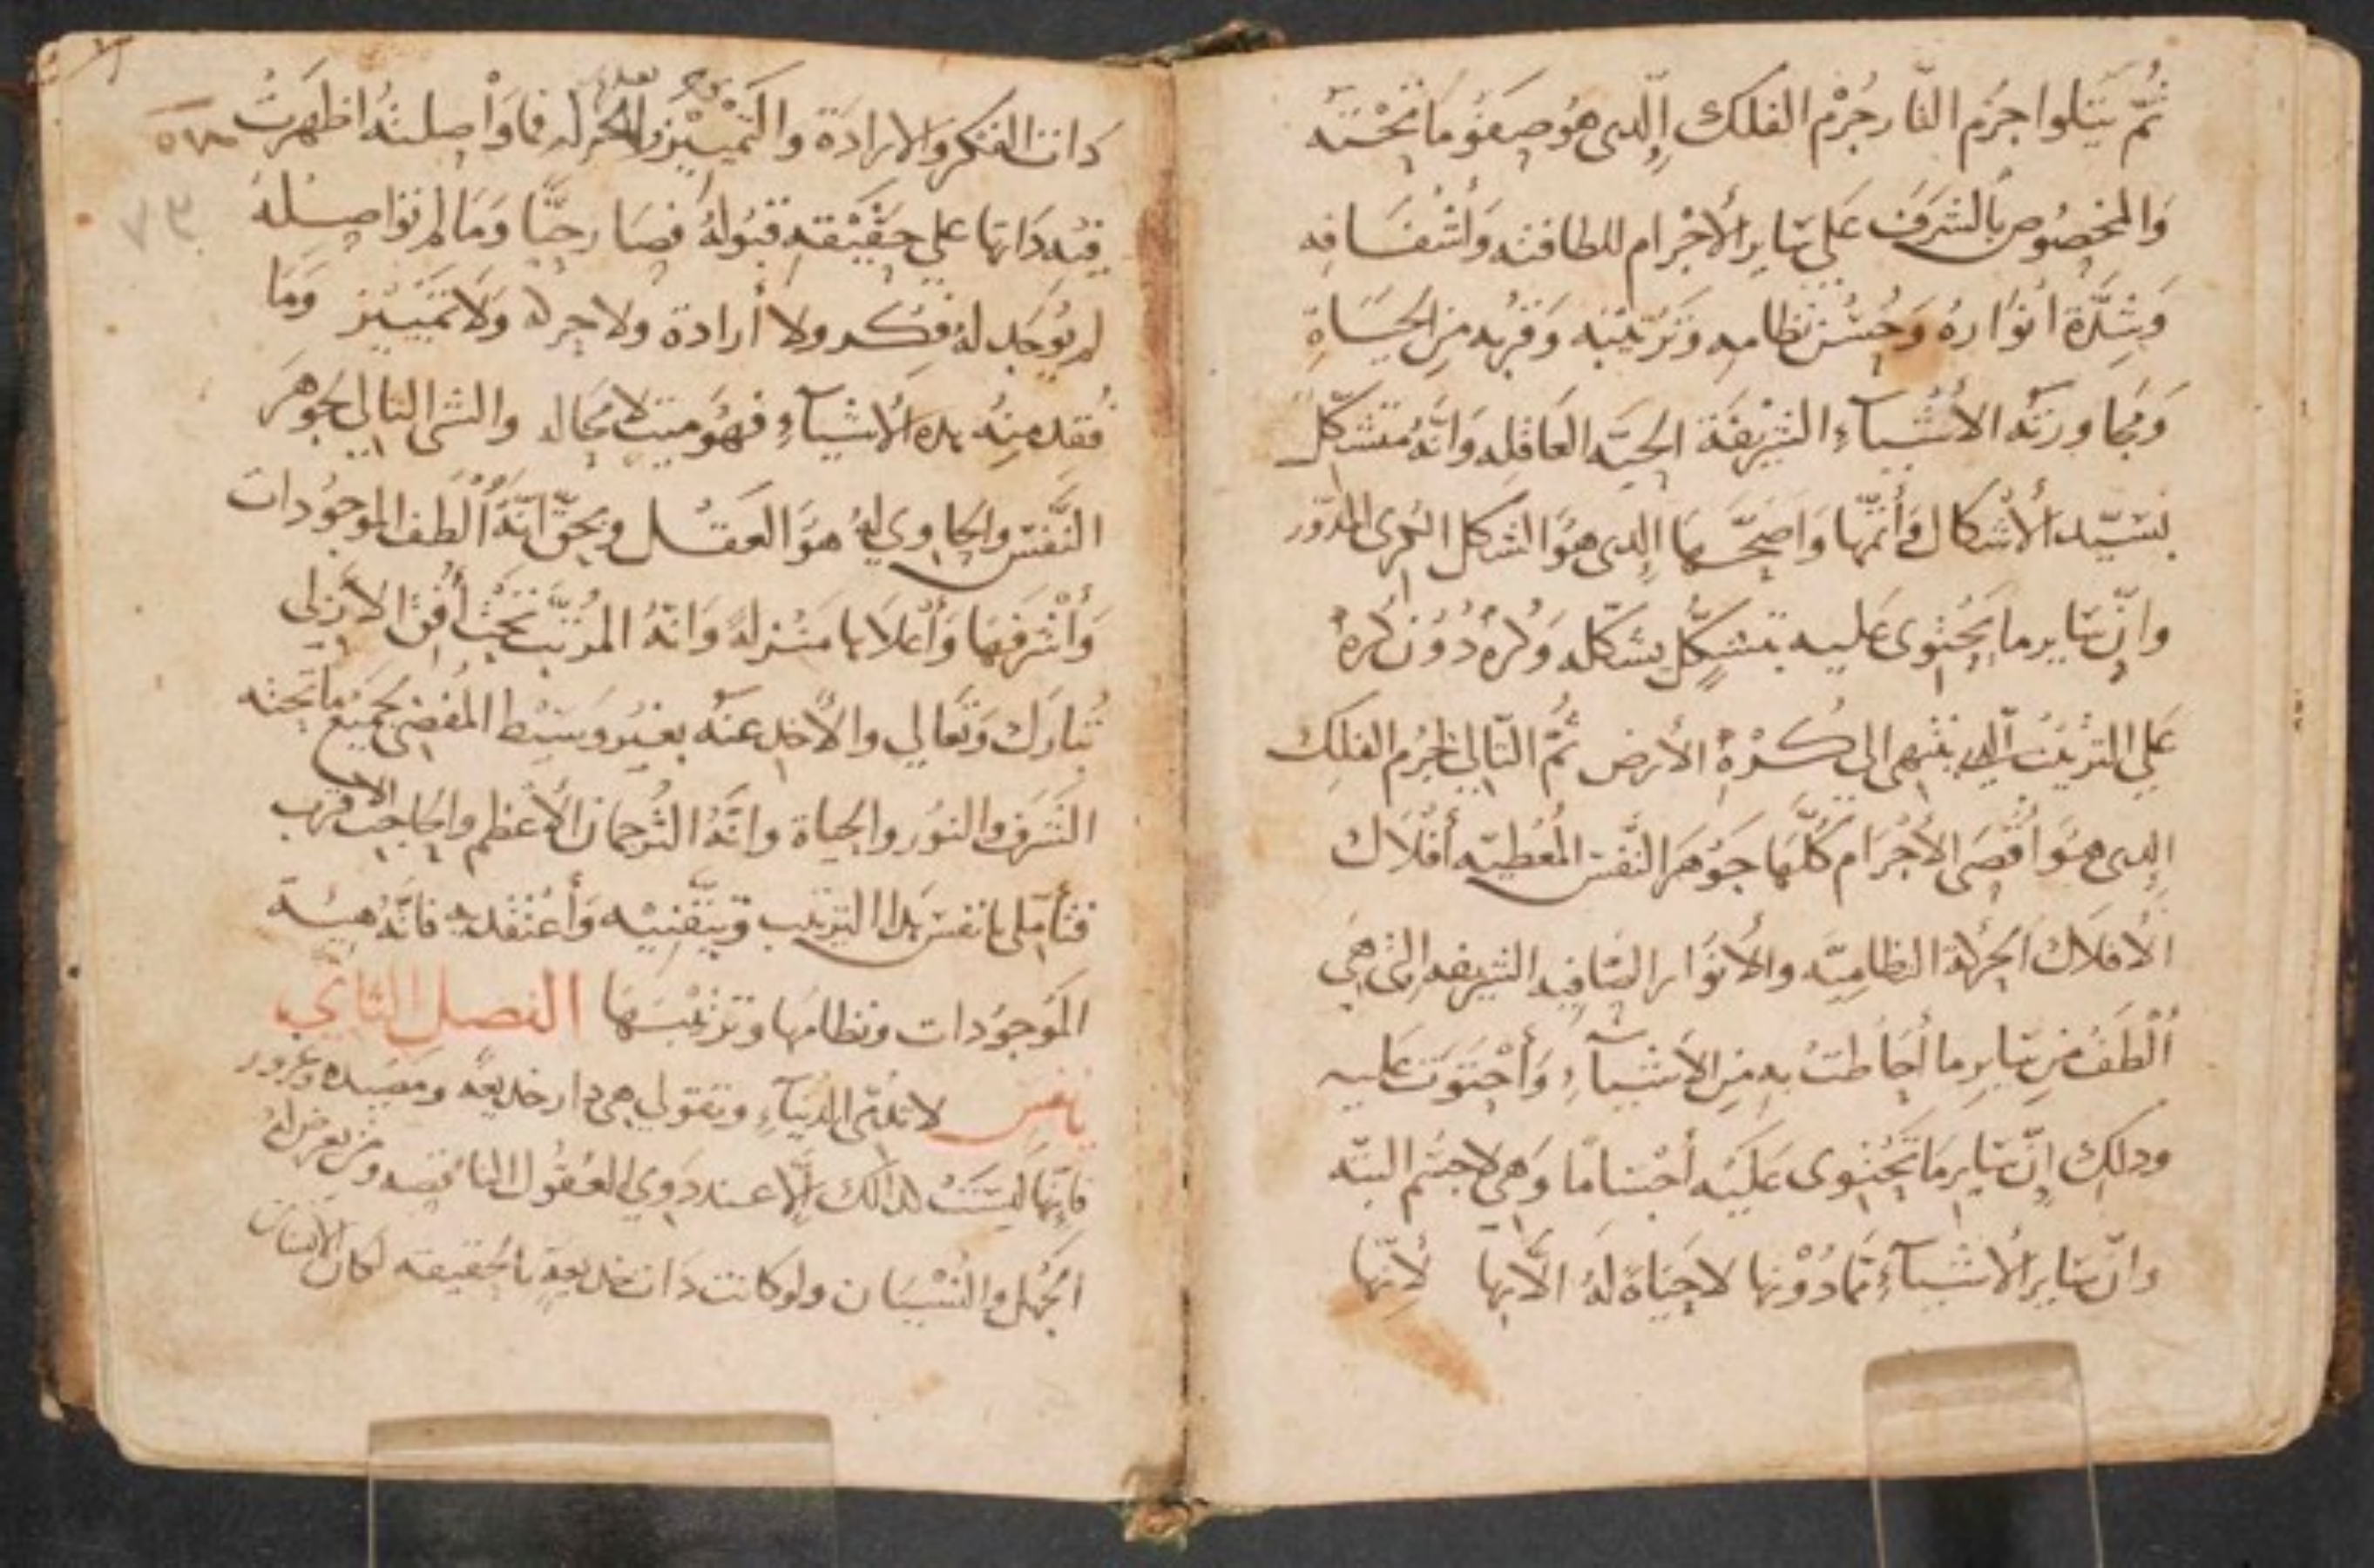 ثُمّ يَتلوا جرُم النّار جُرْم الفلك الّدى هوُ صفوُ مَا تحْتَه
وَالمخصُوص بالشرَف عَلي سَاير الأجْرام للطافته وَاشْفَافه
وَشِدَّة انوَاره وَحُسْن نظامه وَترْتيْبه وَقرُبه مِن الحيَاةِ
وَمجَاورَته الأشْيآءِ الشريْفَة الحيَه العَاقله وَانَّهُ متشَكّل
بسَيّد الأشكال وَأتمّها وَاصَحّهَا الدى هوَ الشكل الكرى المدّور
وانّ سَاير ما يحْتوى عَليه يتشكّل بشكله وَكرة دُوْن كرة
عَلي الترْتيْب الدى ينتهى الى كُرْة الأرض ثمّ التّالي لجرْم الفلك
الدى هوَ اقْصَى الاجْرَام كُلّهَا جَوْهَر النّفس المُعْطيَه أفْلاك
الأفلاك الحرَكة النظاميّه والأنوَار الصّافيه الشريفه التى هَى
ألْطَفُ مِن سَايرِ ما أحَاطتْ به مِن الأشيآءِ وَأحْتوَت عَليه
ودلك انّ سَاير مَا تحْتوى عَليْه أجْسَامًا وَهى لا جسْم البتّه
وانّ سَاير الأشيآءِ ممّا دُوْنها لا حيَاة لهُ الّا بها لأنّها
دات الفكر وَالارادَة والتمْييْز والحركه فما وَاصلتهُ اظهَرتْ
فيْه دَاتها على حَقيْقه قبُولهُ فصَار حيًّا وَمَا لم تواصلهُ
لم يُوجَد لهُ فكر ولا أرادة ولا حركه وَلا تميَيْز وَمَا
فقد منهُ هده الأشيآءِ فهوَ ميت لا محَاله والشى التالي لجَوْهَر
النّفس والحَاوي لهُ هوَ العَقل وبحقّ انّهُ ألْطف الموجوُدات
وَأشرَفهَا وَأعْلاها مَنْزلة وَانّهُ المرَتّب تحْتَ أفُق الأزلى
تبَارَك وَتعَالي والأخد عنهُ بغيْر وَسيْط المُفضى بجميْع ما تحته
الشرَف والنوُر والحياة وانّهُ الترجمان الأعظم والحَاجب الأقرب
فتأمّلى يا نفس هدا الترْتيب وتيَقّنيْه وَأعْتقديه فانّهُ هيئة
المَوجوُدات ونظامُها وترتيْبهَا الفصل الثاني
يا نفس لا تدمّى الدنيَآءِ وتقولي هى دار خديعه ومصيده وغرور
فانّها ليْسَتْ كدالك إلّا عند دَوي العقُول النّاقصه ومن يعرض لهُ
الجَهْل والنسْيَان ولو كانت دَات خديعةٍ بالحَقيقه لكان الأنسان